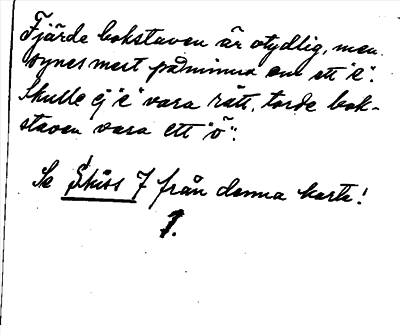 Fjärde bokstaven är otydlig, men
synes mest påminna om ett "e".
Skulle ej "e" vara rätt, torde bok-
staven vara ett "ö".
Se Skiss 7 från denna karta!
1.